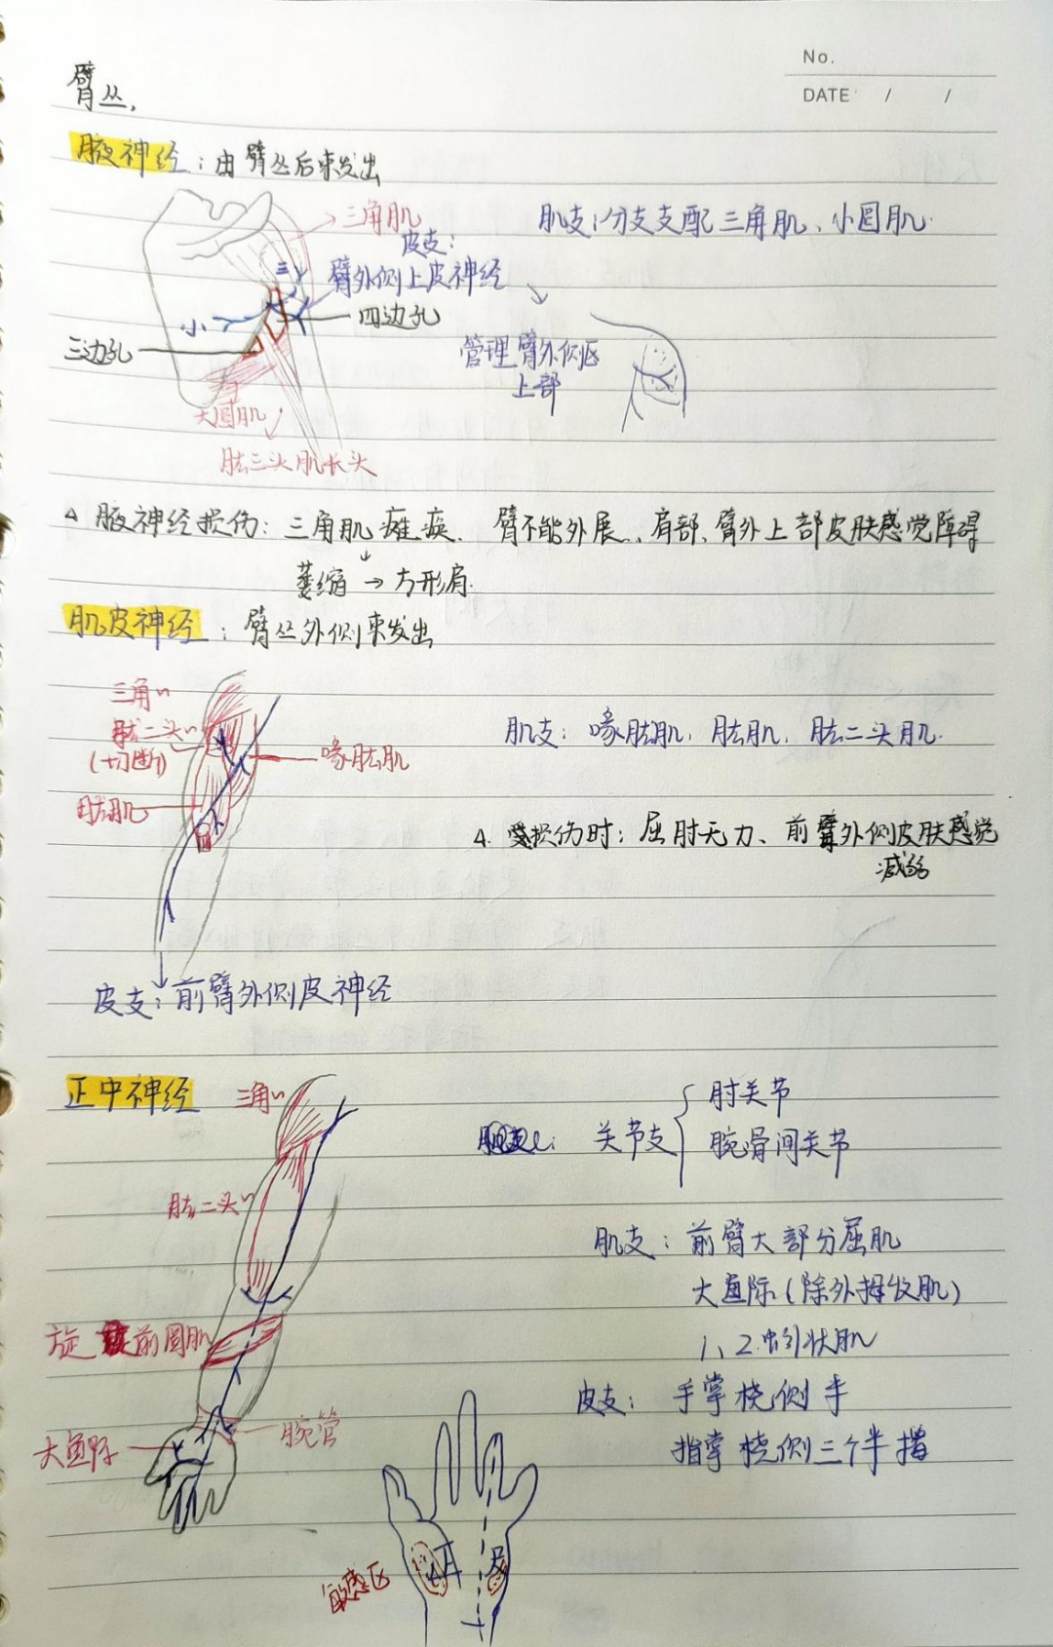 No.
DATE / /
臂丛,
腋神经：由臂丛后束发出
三角肌
肌支：分支支配三角肌、小圆肌
皮支：
臂外侧上皮神经
三
小
四边孔
三边孔
管理臂外侧区
上部
大圆肌
肱三头肌长头
4 腋神经损伤：三角肌瘫痪、臂不能外展、肩部、臂外上部皮肤感觉障碍
萎缩→方形肩
肌皮神经：臂丛外侧束发出
三角~
肱二头~
(切断)
喙肱肌
肱肌
肌支：喙肱肌、肱肌、肱二头肌.
4. 受损伤时：屈肘无力、前臂外侧皮肤感觉
减弱
皮支：前臂外侧皮神经
正中神经
三角~
肱二头~
关节支
肘关节
腕骨间关节
肌支：前臂大部分屈肌
大鱼际(除外拇收肌)
1、2.蚓状肌
旋前圆肌
皮支：手掌桡侧半
指掌桡侧三个半指
大鱼际
腕管
敏感区
正
尺